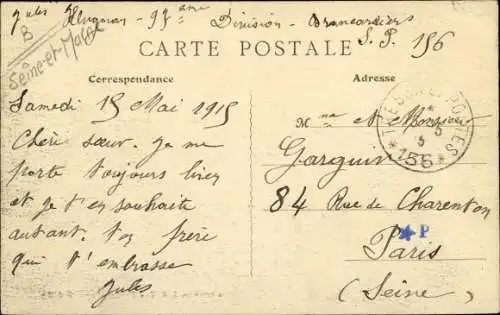 Jules - 97ème Division - Brancardiers
S. P. 156
B
Seine-et-Marne
CARTE POSTALE
Correspondance
Adresse
Samedi 15 Mai 1915
Chère sœur. Je me
porte toujours bien
et je t'en souhaite
autant. Ton frère
qui t'embrasse
Jules
Mme et Monsieur
Garguin
84 Rue de Charenton
Paris
(Seine)
TRESOR ET POSTES
*156*
P